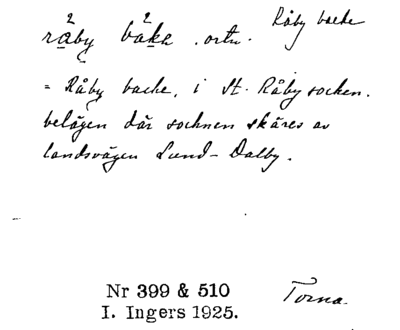 råby bakə. ortn. Råby backe
= Råby backe, i St. Råby socken.
belägen där socknen skäres av
landsvägen Lund-Dalby.
Nr 399 & 510
I. Ingers 1925.
Torna.